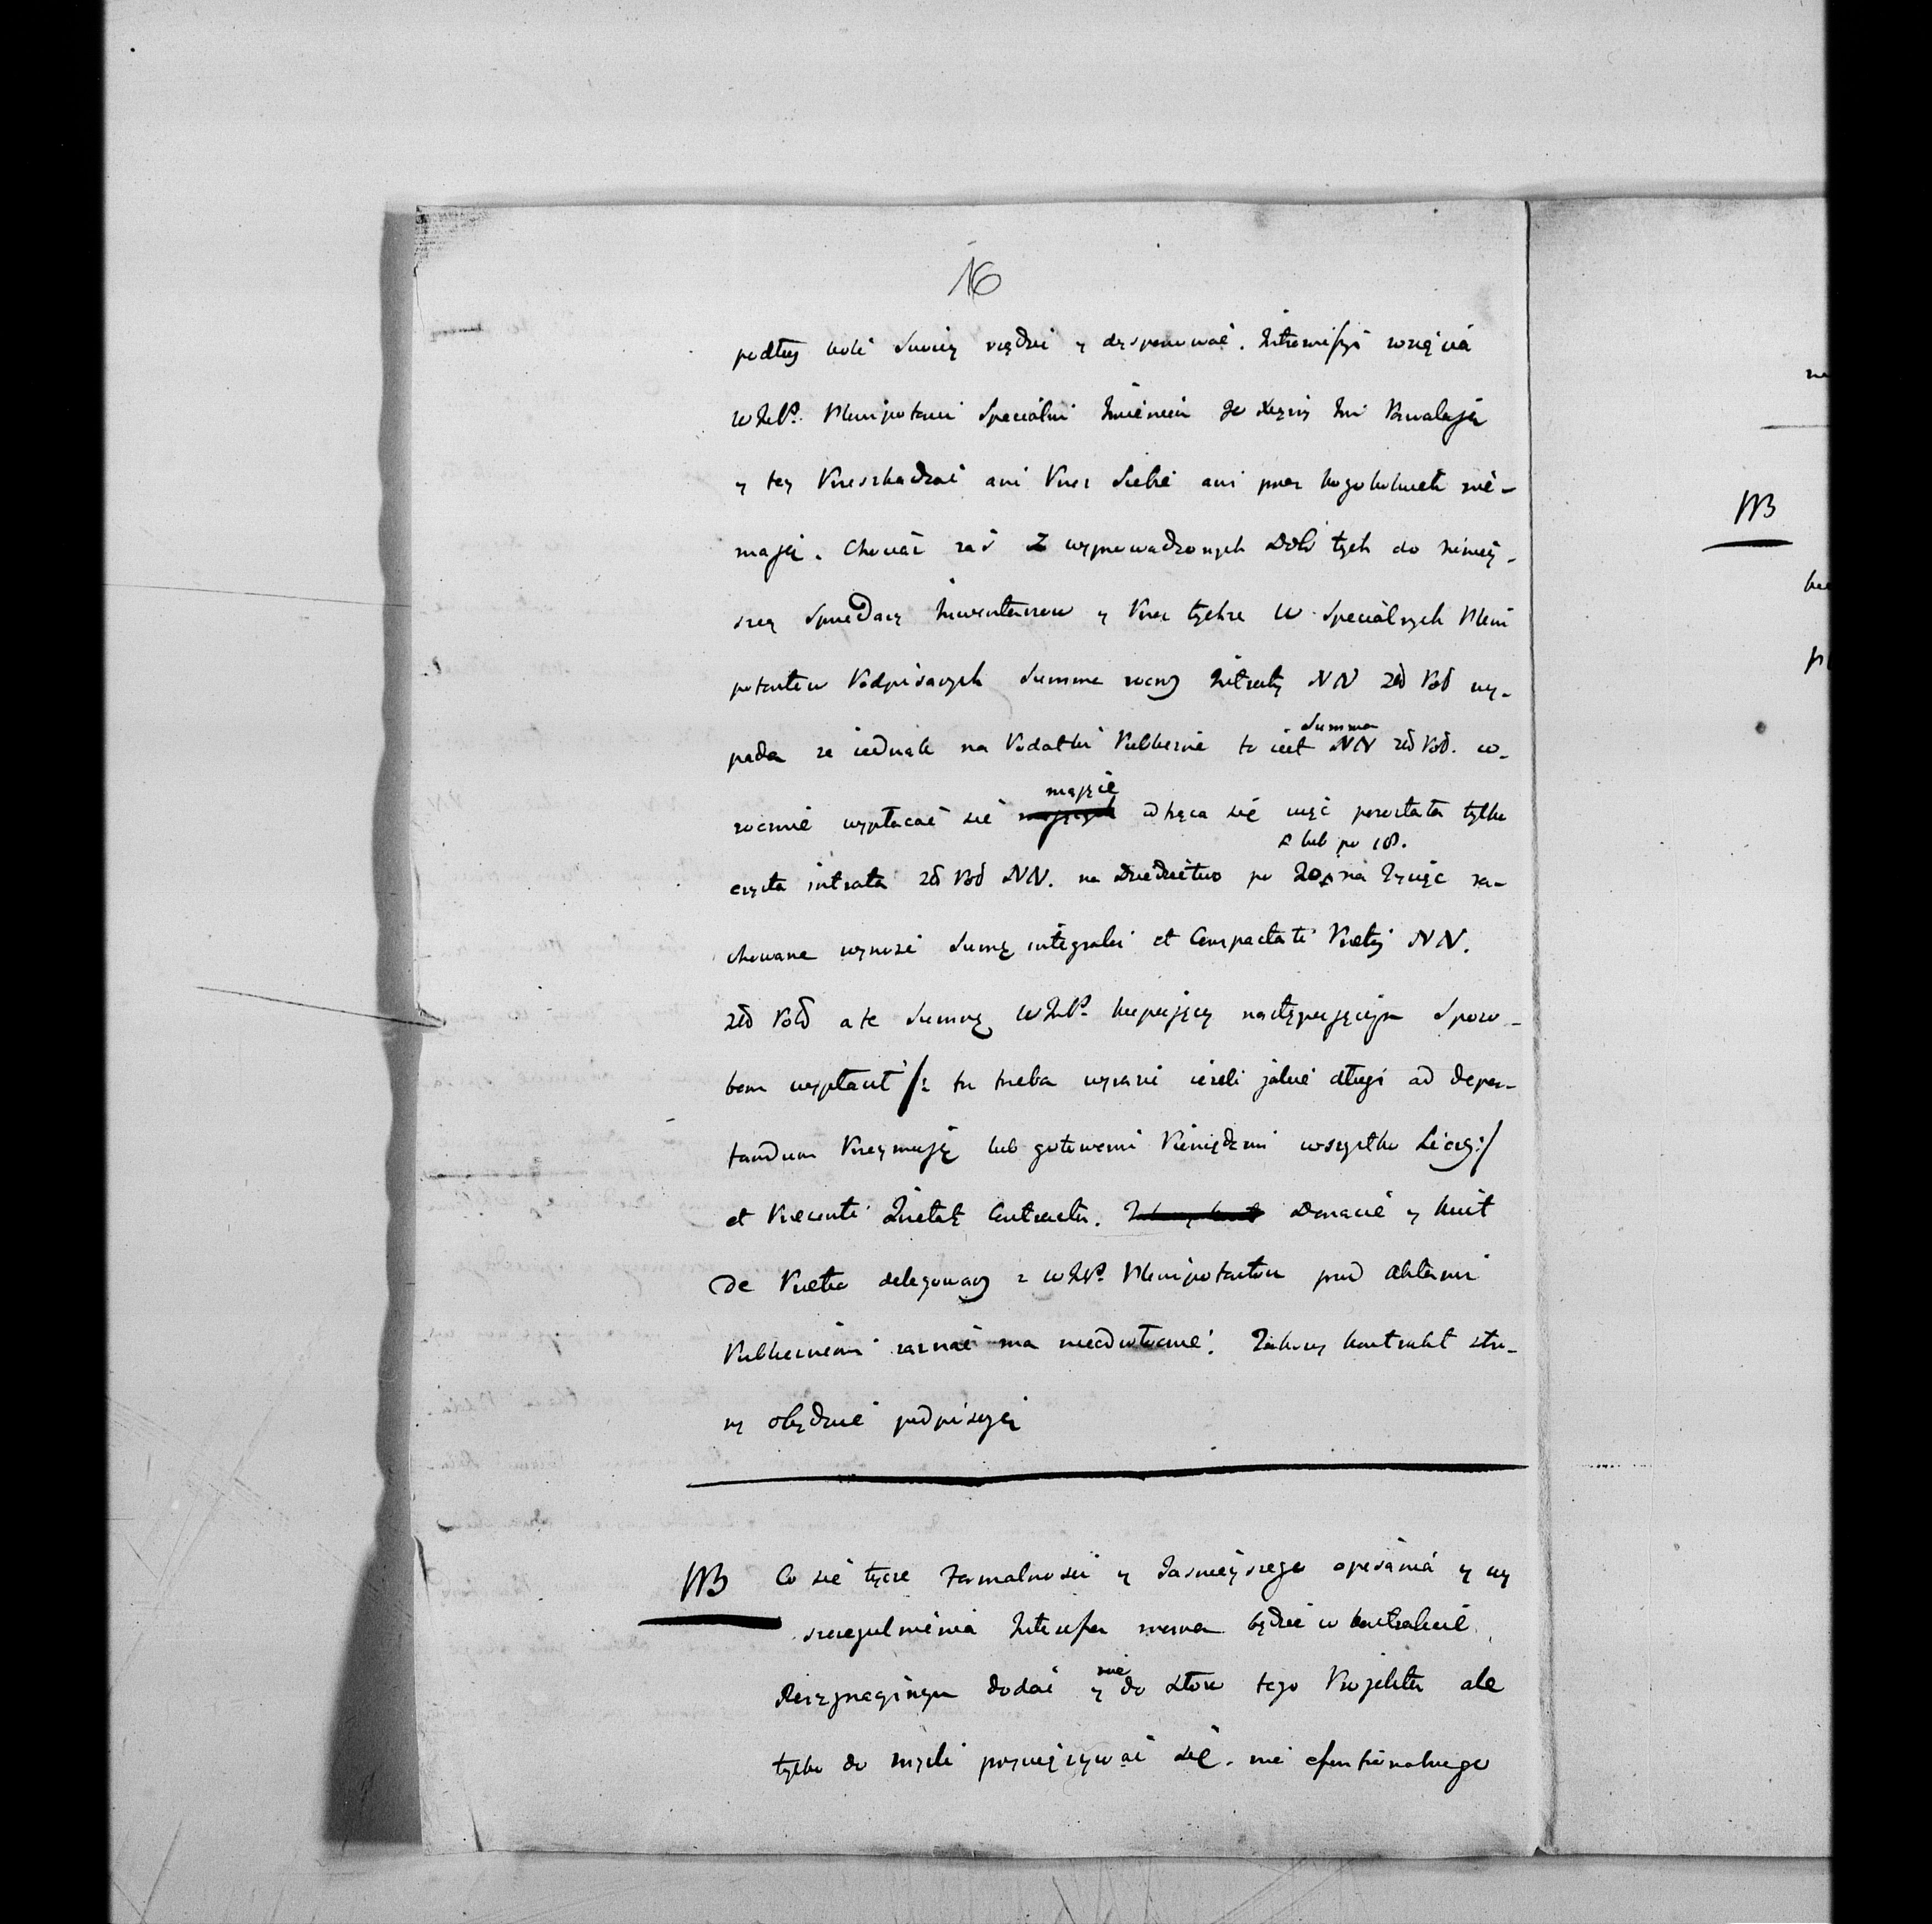 16
podług woli swoiey rządzić y dysponować. Intromissyi wzięcia
WJchP. Plenipotenci Specialni Imieniem Je Xięznj Im pozwalają
y tey Przeszkadzać ani Przez Siebie ani przez kogokolwiek nie-
mają. Chociaż zaś z wyprowadzonych Dóbr tych do ninieÿ-
szey Sprzedaży Inwentarzow y Przez tychże W Specialnych Pleni
potentow Podpisanych Summa roczny Intraty NN Złł Pol wy-
pada ze iednak na Podatki Publiczne to iest Summa NN złł Pol. co-
rocznie wypłacać się maiące wtrąca się więc pozostała tylko
czysta intrata Złł Pol NN. na Dziedzictwo po 20 x lub po 18. na Tysiąc ra-
chowana wynosi Summę integralni et Compactati Pretij NN.
Złł Poll a te Summę WJchP. kupujący następującym Sposo-
bem wypłacił /: tu trzeba wyrazić ieżeli jakie długi ad depor-
tandum Przeymuję lub gotowemi Pieniędzmi wszystko Liczy :/
et Praesenti Quietat Contractu. Donacie y kwit
de Pretio delegowany z WJchP. Plenipotentow przed Aktami
Publicznemi zeznać ma nieodwłocznie. Takowy kontrakt stro-
ny obydwie podpisuią
NB Co się tycze Formalności y Jaśnieyszego opisania y wy
szczegulnienia Interessu można będzie w kontrakcie
Rezygnacyinym dodać y nie do słow tego Projektu ale
tylko do myśli przywięzywać się. nie essentionalnego
NB